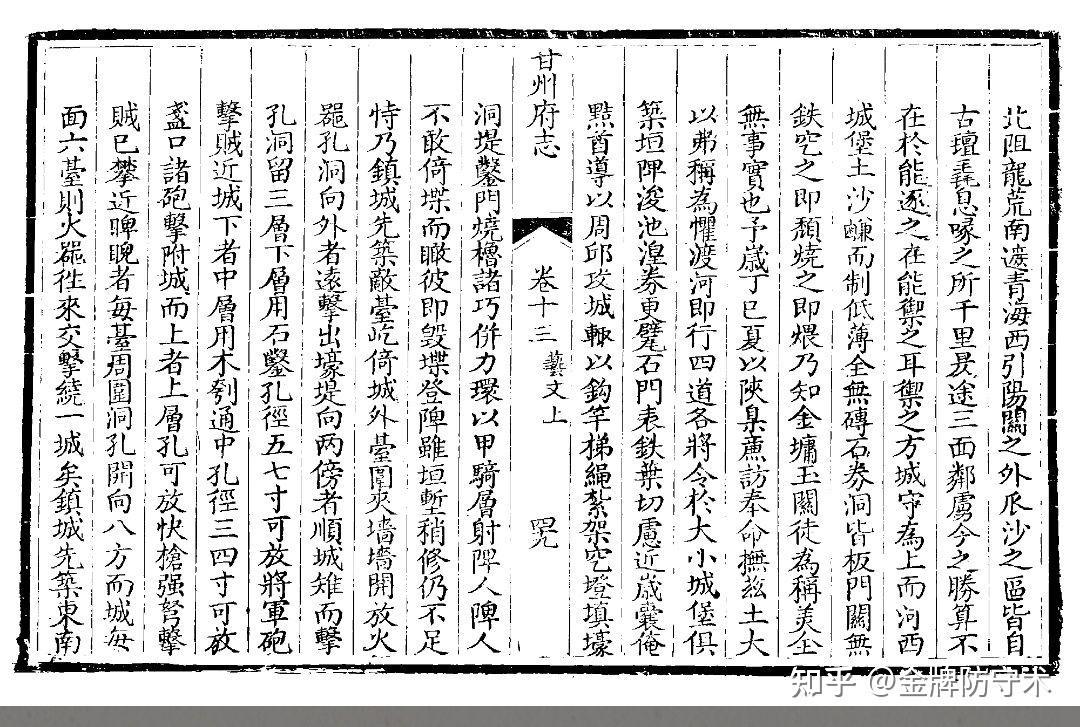 北阻龍荒南邊青海西引陽關之外瓜沙之區皆自
古壇毳息喙之所千里長途三面鄰虜今之勝算不
在於能逐之在能禦之耳禦之方城守為上而河西
城堡土沙鹻而制低薄全無磚石券洞皆板門關無
鉄穵之即頹燒之即煨乃知金墉玉關徒為稱美全
無事實也予嵗丁巳夏以陝臬薦訪奉命撫兹土大
以弗稱為懼渡河即行四道各將令於大小城堡俱
築垣陴浚池湟券更甓石門表鉄葉切慮近嵗囊俺
黠酋導以周邱攻城輙以鈎竿梯繩紮架穵墱填壕
洞堤鑿門燒櫓諸巧併力環以甲騎層射陴人陴人
不敢倚堞而瞰彼即毀堞登陴雖垣塹稍修仍不足
恃乃鎮城先築敵臺屹倚城外臺圍夾墻墻開放火
器孔洞向外者遠擊出壕堤向两傍者順城雉而擊
孔洞留三層下層用石鑿孔徑五七寸可放將軍砲
擊賊近城下者中層用木刳通中孔徑三四寸可放
盞口諸砲擊附城而上者上層孔可放快槍强弩擊
賊已攀近睥睨者每臺周圍洞孔開向八方而城每
面六臺則火器徃來交擊繞一城矣鎮城先築東南
甘州府志
卷十三 藝文上
罕九
知乎 @金牌防守木